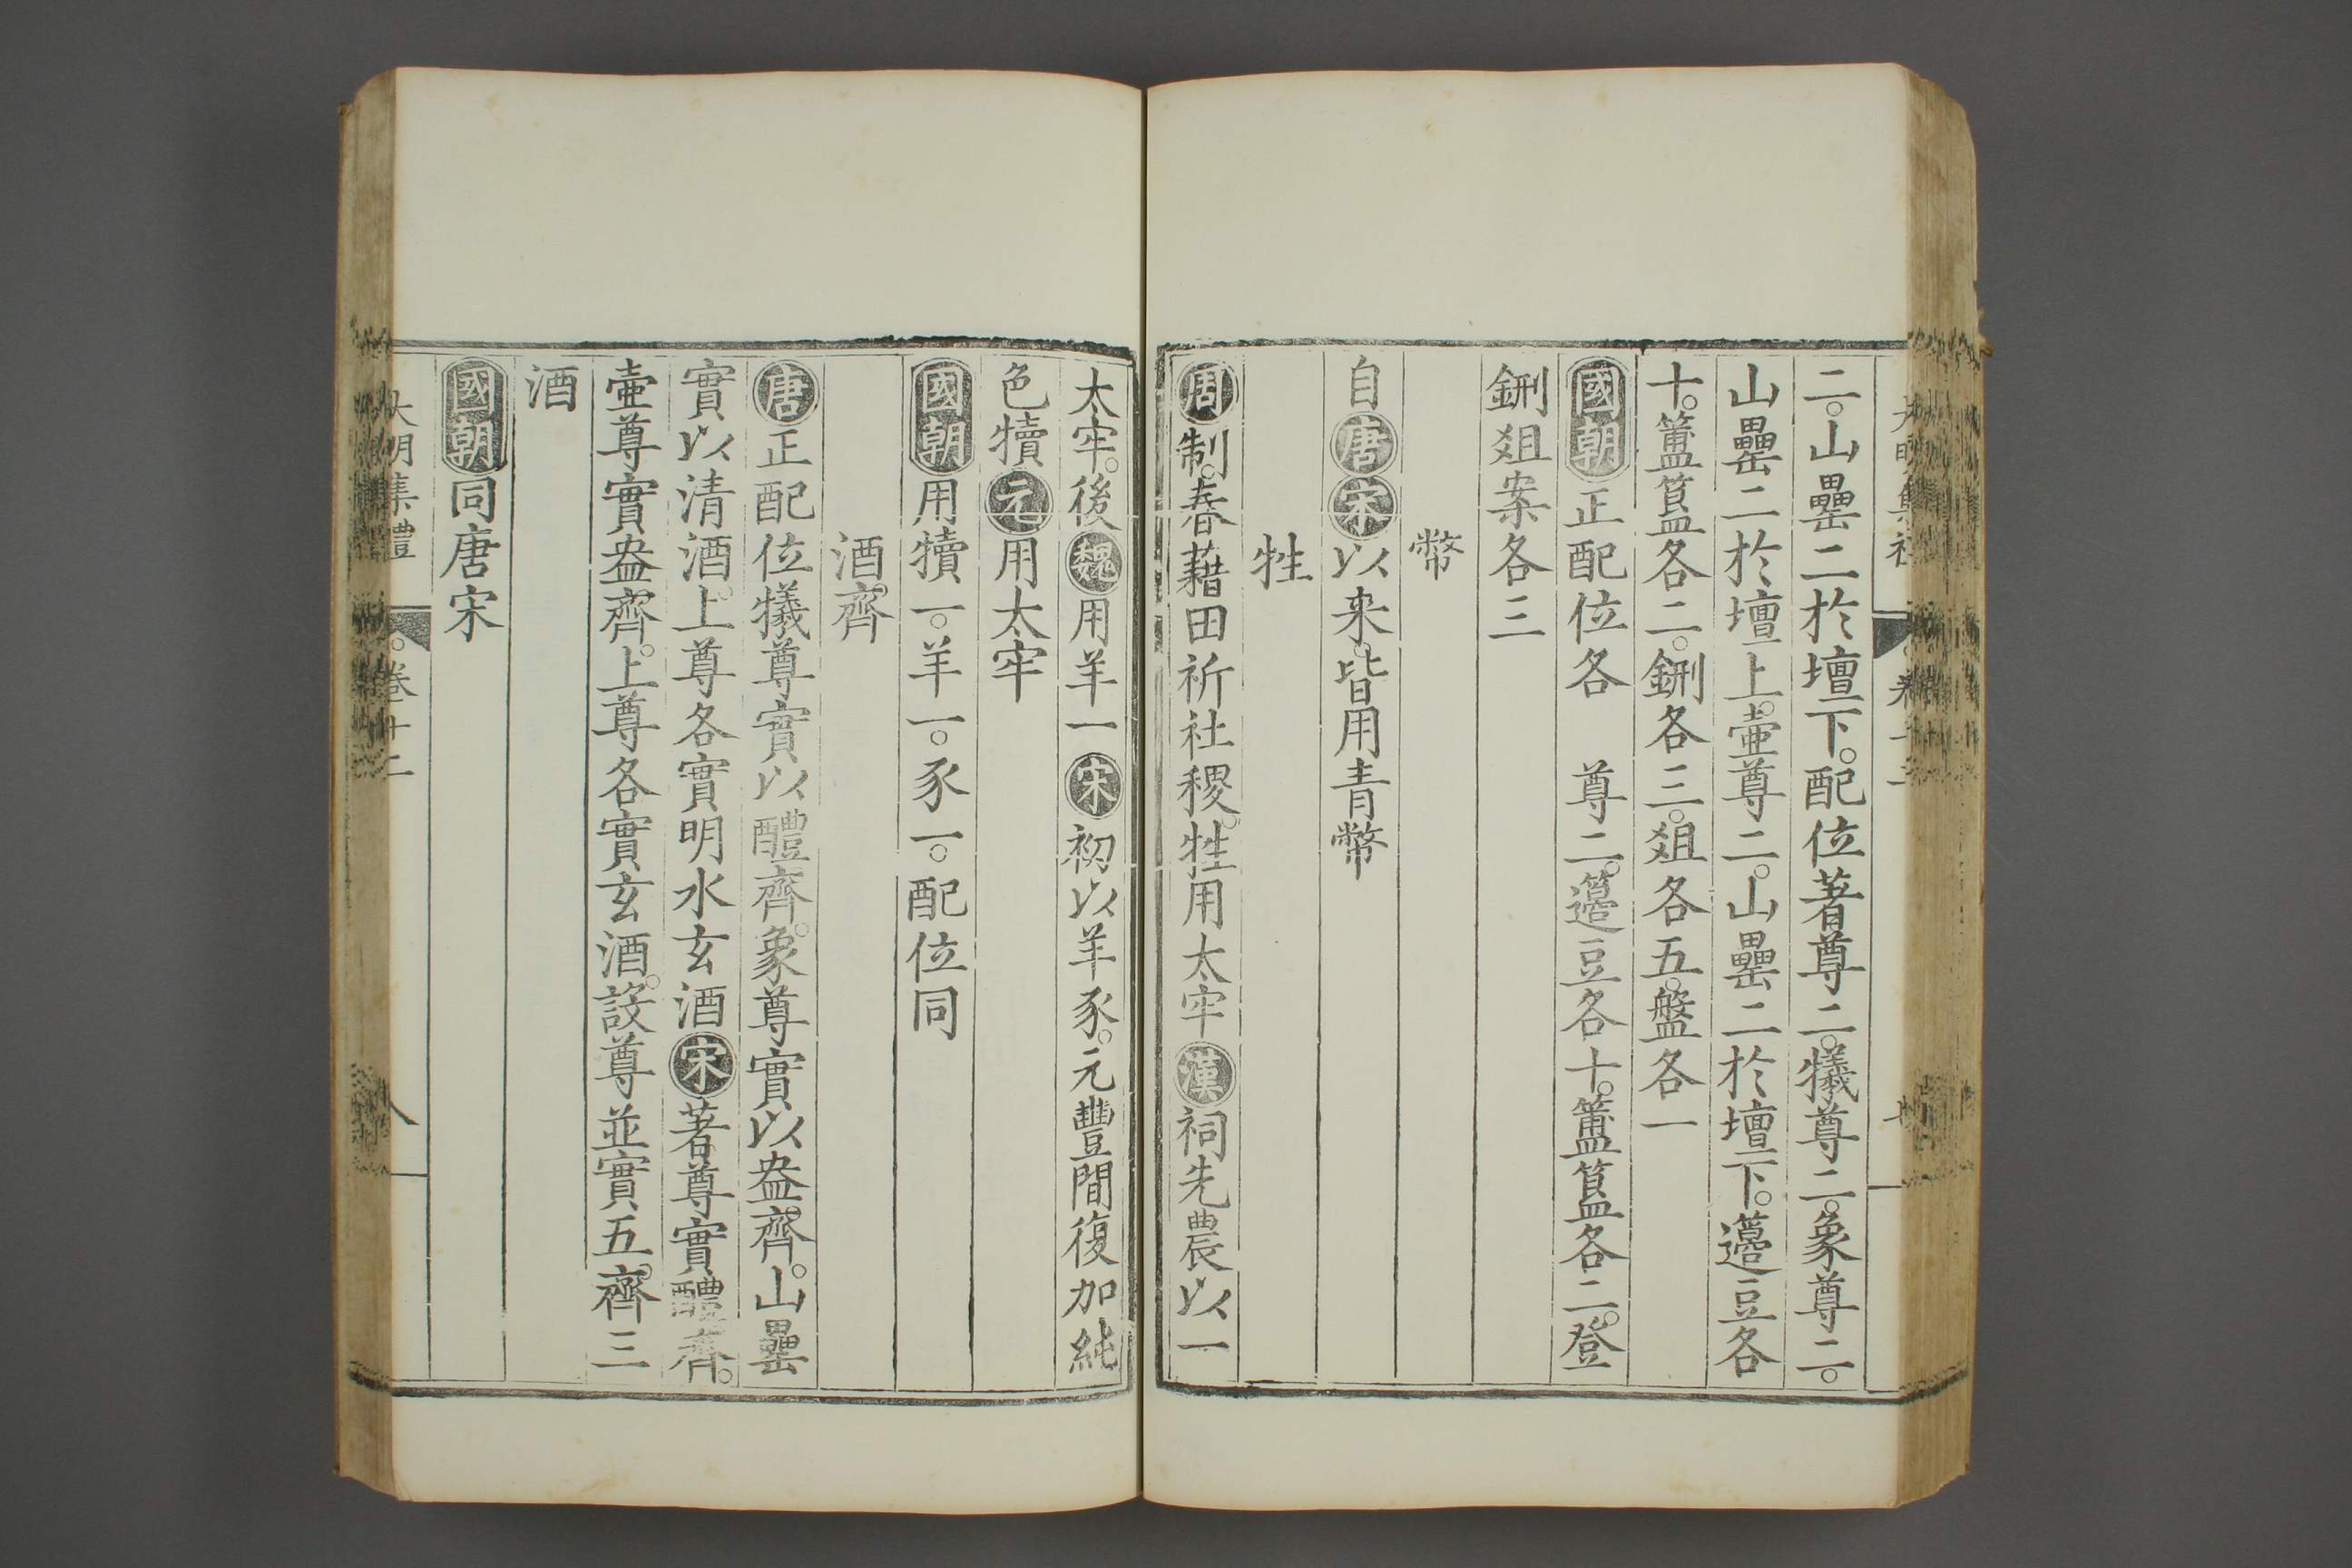 二。山罍二於壇下。配位著尊二。犧尊二。象尊二。
山罍二於壇上。壷尊二。山罍二於壇下。籩豆各
十。簠簋各二。鉶各三。爼各五。盤各一
國朝正配位各　尊二。籩豆各十。簠簋各二。登
鉶爼案各三
幣
自唐宋以来。皆用青幣
牲
周制。春藉田祈社稷。牲用太牢漢祠先農以一
太牢。後魏用羊一宋初以羊豕。元豐間復加純
色犢元用太牢
國朝用犢一。羊一。豕一。配位同
酒齊
唐正配位犧尊實以醴齊。象尊實以盎齊。山罍
實以清酒。上尊各實明水玄酒宋著尊實醴齊。
壷尊實盎齊。上尊各實玄酒。設尊並實五齊三
酒
國朝同唐宋
大明集禮　卷十二　八